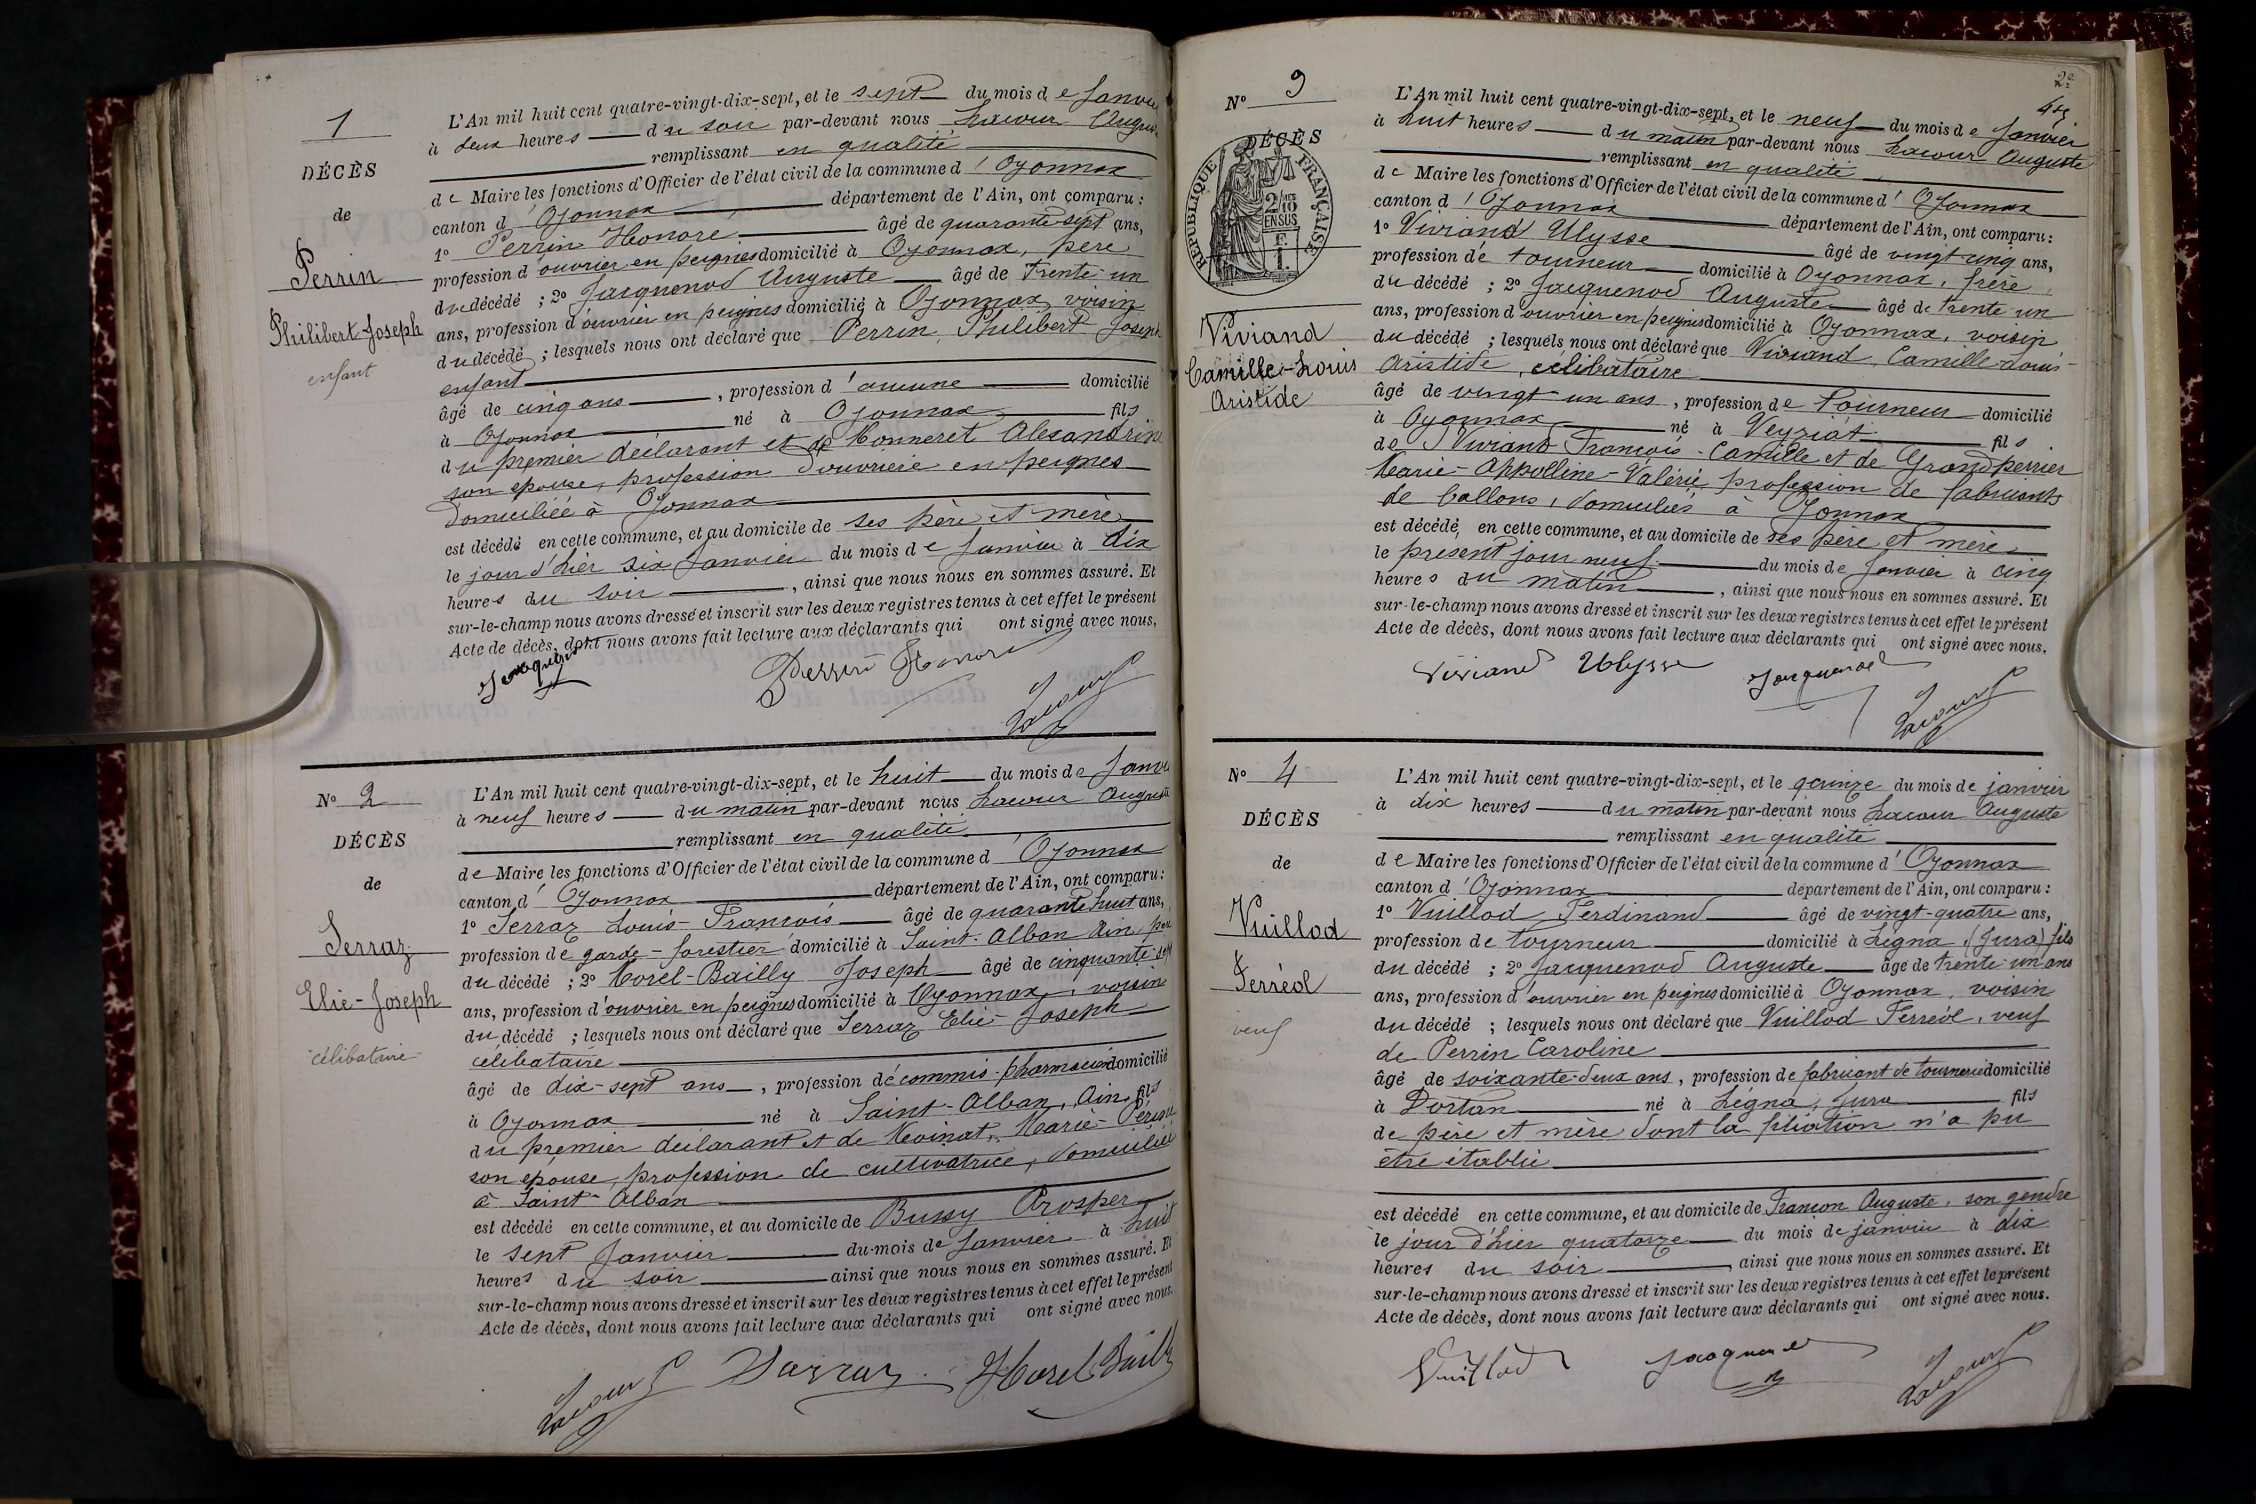 1
DÉCÈS
de
Perrin
Philibert Joseph
enfant
L'An mil huit cent quatre-vingt-dix-sept, et le sept du mois de Janvier
à deux heures du soir par-devant nous Lacour Auguste
remplissant en qualité
de Maire les fonctions d'Officier de l'état civil de la commune d'Oyonnax
canton d'Oyonnax département de l'Ain, ont comparu :
1º Perrin Honoré âgé de quarante-sept ans,
profession d'ouvrier en peignes domicilié à Oyonnax, père
du décédé ; 2º Jacquenod Auguste âgé de trente-un
ans, profession d'ouvrier en peignes domicilié à Oyonnax, voisin
du décédé ; lesquels nous ont déclaré que Perrin, Philibert Joseph
enfant
âgé de cinq ans, profession d'aucune domicilié
à Oyonnax né à Oyonnax fils
du premier déclarant et de Monneret Alexandrine
son épouse, profession d'ouvrière en peignes
domiciliée à Oyonnax
est décédé en cette commune, et au domicile de ses père et mère
le jour d'hier six Janvier du mois de Janvier à dix
heures du soir, ainsi que nous nous en sommes assuré. Et
sur-le-champ nous avons dressé et inscrit sur les deux registres tenus à cet effet le présent
Acte de décès, dont nous avons fait lecture aux déclarants qui ont signé avec nous,
Jacquenod Perrin Honoré
Lacour
Nº 2
DÉCÈS
de
Serraz
Elie-Joseph
célibataire
L'An mil huit cent quatre-vingt-dix-sept, et le huit du mois de Janvier
à neuf heures du matin par-devant nous Lacour Auguste
remplissant en qualité
de Maire les fonctions d'Officier de l'état civil de la commune d'Oyonnax
canton d'Oyonnax département de l'Ain, ont comparu :
1º Serraz Louis-François âgé de quarante huit ans,
profession de garde-forestier domicilié à Saint-Alban Ain, père
du décédé ; 2º Morel-Bailly Joseph âgé de cinquante-sept
ans, profession d'ouvrier en peignes domicilié à Oyonnax, voisin
du décédé ; lesquels nous ont déclaré que Serraz Elie-Joseph
célibataire
âgé de dix-sept ans, profession de commis-pharmacien domicilié
à Oyonnax né à Saint-Alban, Ain, fils
du premier déclarant et de Marie-
son épouse, profession de cultivatrice, domiciliée
à Saint-Alban
est décédé en cette commune, et au domicile de Bussy Prosper
le sept Janvier du mois de Janvier à huit
heures du soir ainsi que nous nous en sommes assuré. Et
sur-le-champ nous avons dressé et inscrit sur les deux registres tenus à cet effet le présent
Acte de décès, dont nous avons fait lecture aux déclarants qui ont signé avec nous.
Lacour Sarraz Morel Bailly
22
Nº 3
DÉCÈS
RÉPUBLIQUE FRANÇAISE
2/10 EN SUS
Viviand
Camille-Louis
Aristide
L'An mil huit cent quatre-vingt-dix-sept, et le neuf du mois de Janvier
à huit heures du matin par-devant nous Lacour Auguste
remplissant en qualité
de Maire les fonctions d'Officier de l'état civil de la commune d'Oyonnax
canton d'Oyonnax département de l'Ain, ont comparu :
1º Viviand Ulysse âgé de vingt-cinq ans,
profession de tourneur domicilié à Oyonnax, frère
du décédé ; 2º Jacquenod Auguste âgé de trente-un
ans, profession d'ouvrier en peignes domicilié à Oyonnax, voisin
du décédé ; lesquels nous ont déclaré que Viviand, Camille-Louis-
Aristide, célibataire
âgé de vingt-un ans, profession de tourneur domicilié
à Oyonnax né à Veyziat fils
de Viviand François-Camille et de Grandperrier
Marie-Appolline-Valérie, profession de fabricants
de ballons, domiciliés à Oyonnax
est décédé, en cette commune, et au domicile de ses père et mère
le présent jour neuf du mois de Janvier à cinq
heures du matin, ainsi que nous nous en sommes assuré. Et
sur-le-champ nous avons dressé et inscrit sur les deux registres tenus à cet effet le présent
Acte de décès, dont nous avons fait lecture aux déclarants qui ont signé avec nous.
Viviand Ulysse Jacquenod
Lacour
Nº 4
DÉCÈS
de
Vuillod
Ferréol
veuf
L'An mil huit cent quatre-vingt-dix-sept, et le quinze du mois de janvier
à dix heures du matin par-devant nous Lacour Auguste
remplissant en qualité
de Maire les fonctions d'Officier de l'état civil de la commune d'Oyonnax
canton d'Oyonnax département de l'Ain, ont comparu :
1º Vuillod Ferdinand âgé de vingt-quatre ans,
profession de tourneur domicilié à Légna, (Jura) fils
du décédé ; 2º Jacquenod Auguste âgé de trente-un ans
ans, profession d'ouvrier en peignes domicilié à Oyonnax, voisin
du décédé ; lesquels nous ont déclaré que Vuillod Ferréol, veuf
de Perrin Caroline
âgé de soixante-deux ans, profession de fabricant de tournerie domicilié
à Dortan né à Légna, Jura fils
de père et mère dont la filiation n'a pu
être établie
est décédé en cette commune, et au domicile de Françon Auguste, son gendre
le jour d'hier quatorze du mois de janvier à dix
heures du soir, ainsi que nous nous en sommes assuré. Et
sur-le-champ nous avons dressé et inscrit sur les deux registres tenus à cet effet le présent
Acte de décès, dont nous avons fait lecture aux déclarants qui ont signé avec nous.
Vuillod Jacquenod
Lacour